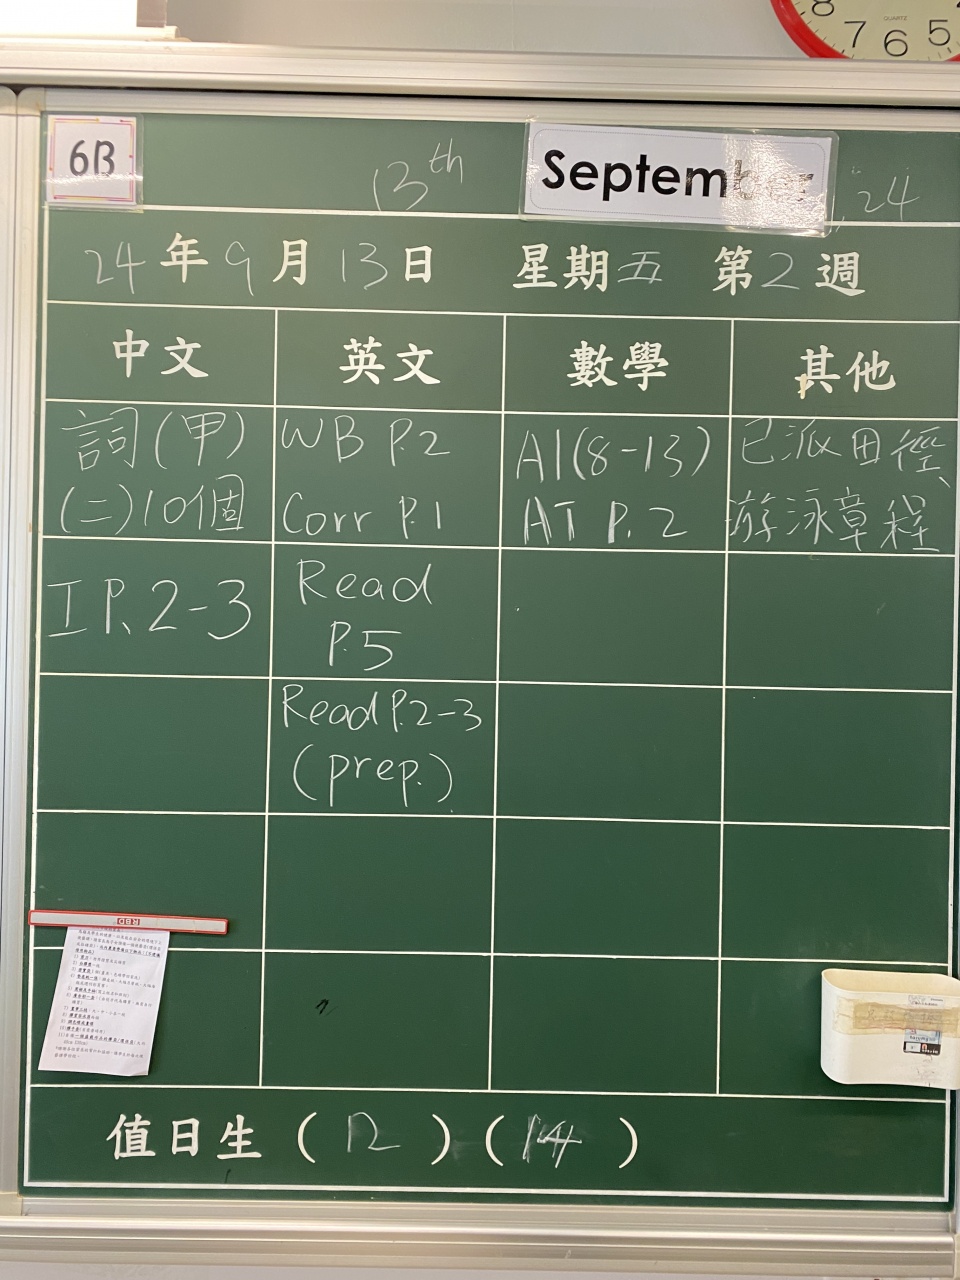 8 7 6 5
QUARTZ
6B
13th September, 24
24年9月13日 星期五 第2週
中文 英文 數學 其他
詞(甲) WB P.2 A1(8-13) 已派田徑、
(二)10個 Corr P.1 AT P.2 游泳章程
I P.2-3 Read
P.5
Read P.2-3
(prep.)
RBD
值日生(12)(14)